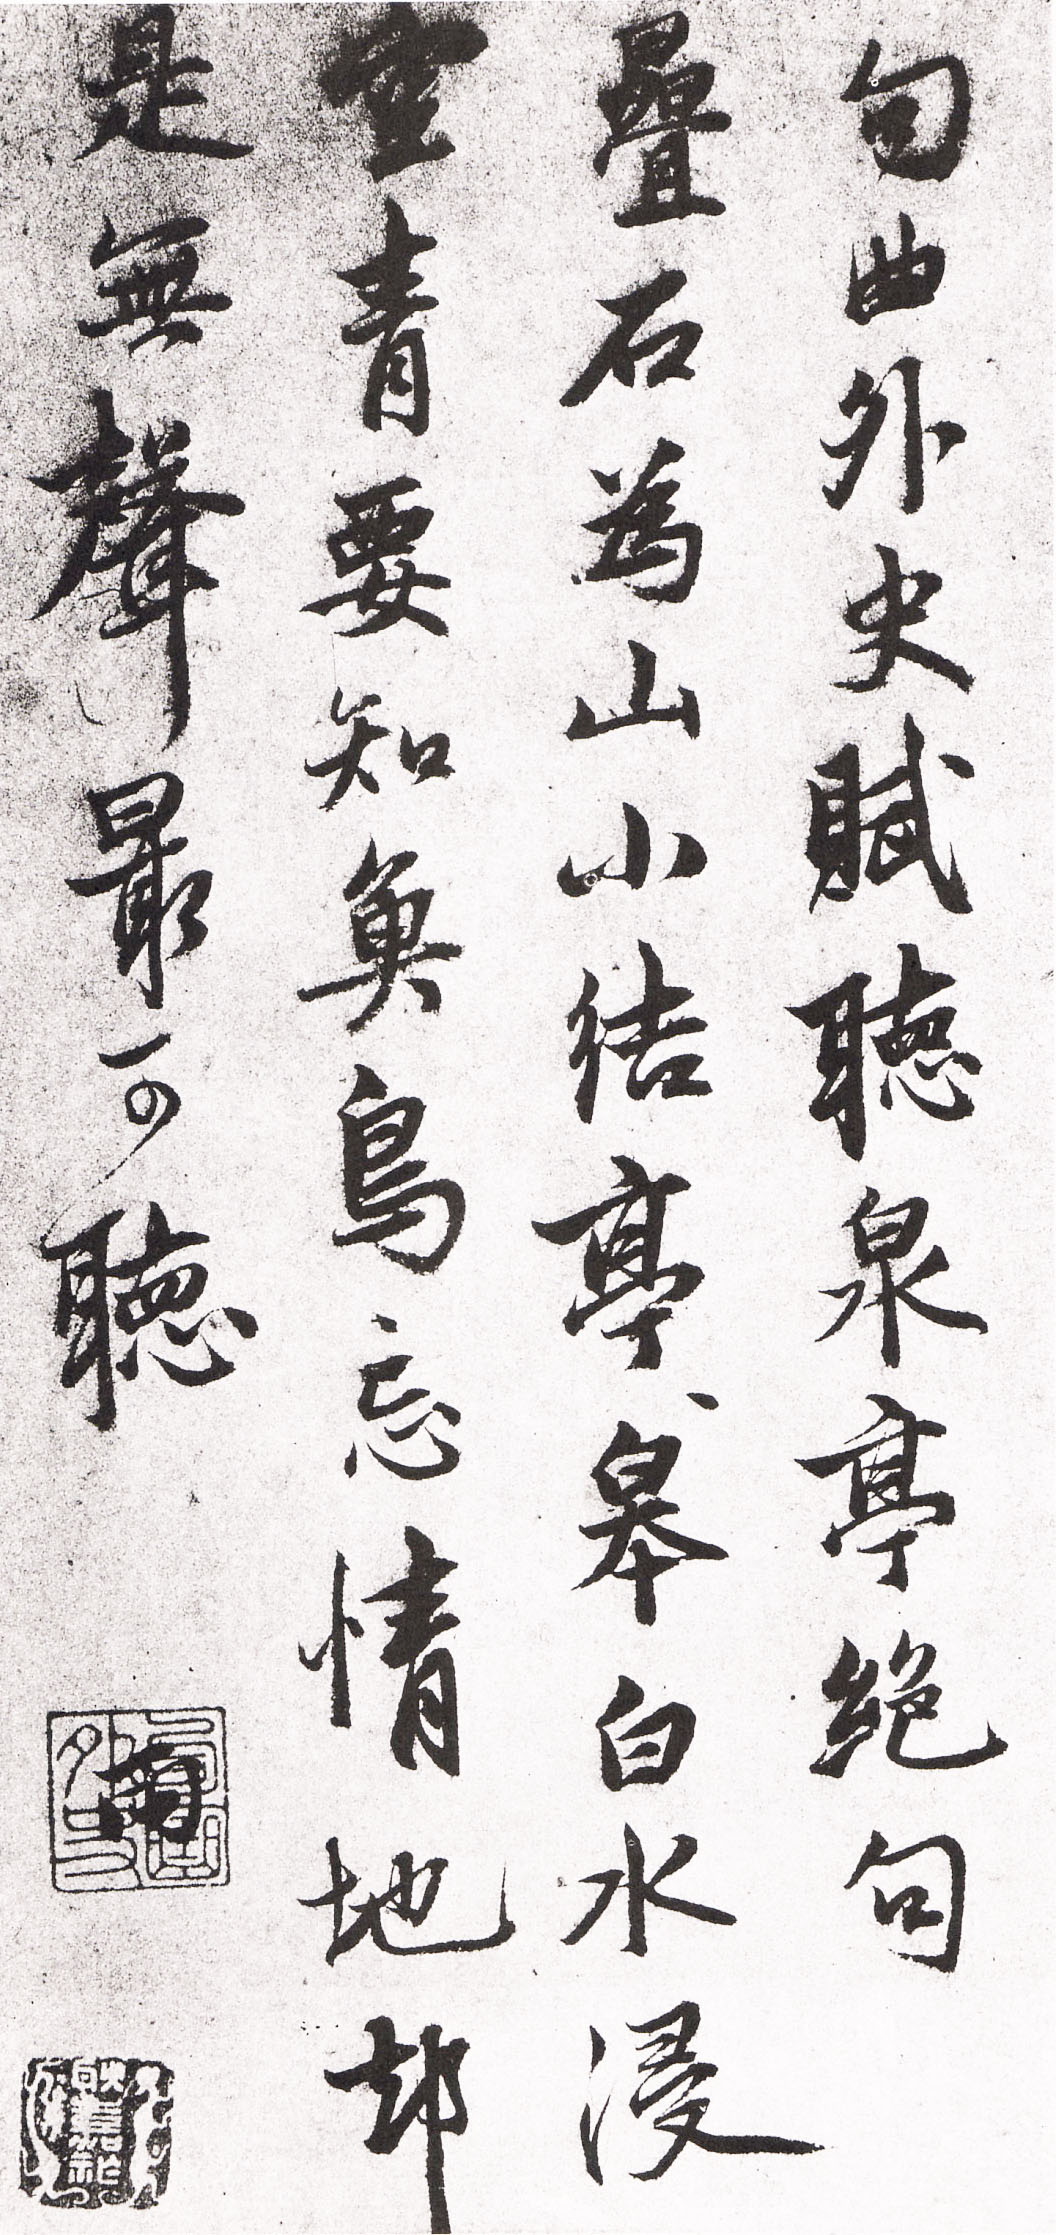 句曲外史賦聽泉亭絶句
疊石為山小結亭、皋白水浸
空青要知魚鳥忘情地却
是無聲最可聽
雨
句曲外史